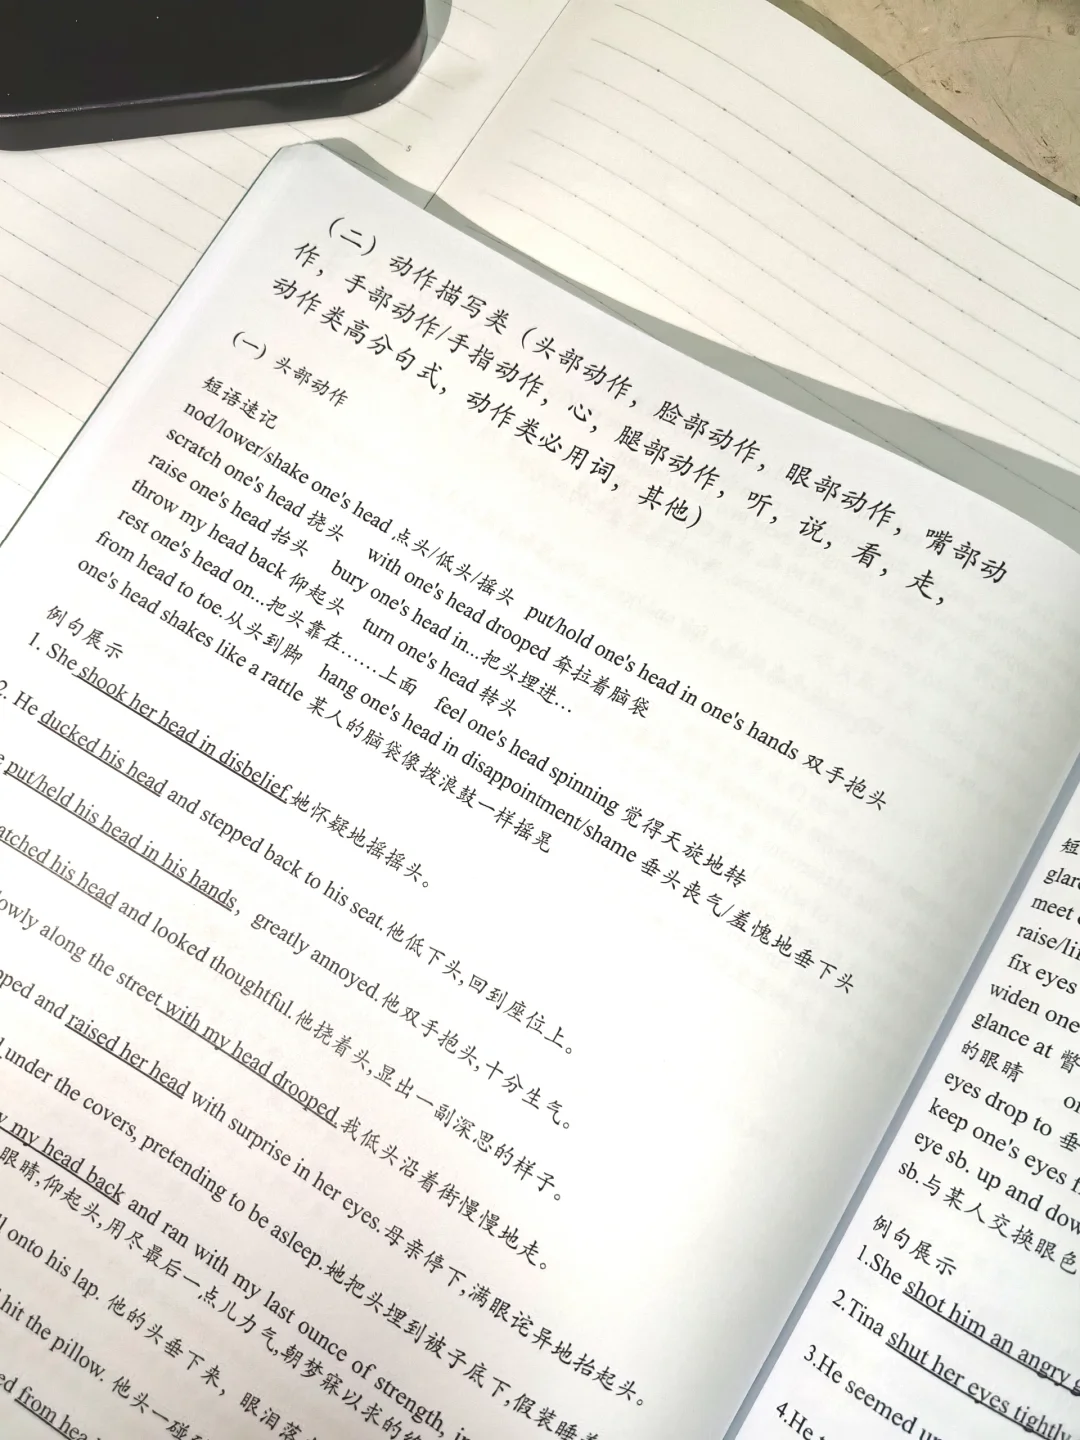 （二）动作描写类（头部动作，脸部动作，眼部动作，嘴部动
作，手部动作/手指动作，心，腿部动作，听，说，看，走，
动作类高分句式，动作类必用词，其他）
（一）头部动作
短语速记
nod/lower/shake one's head 点头/低头/摇头 put/hold one's head in one's hands 双手抱头
scratch one's head 挠头 with one's head drooped 耷拉着脑袋
raise one's head 抬头 bury one's head in...把头埋进…
throw my head back 仰起头 turn one's head 转头
rest one's head on...把头靠在……上面 feel one's head spinning 觉得天旋地转
from head to toe.从头到脚 hang one's head in disappointment/shame 垂头丧气/羞愧地垂下头
one's head shakes like a rattle 某人的脑袋像拨浪鼓一样摇晃
例句展示
1. She shook her head in disbelief.她怀疑地摇摇头。
2. He ducked his head and stepped back to his seat.他低下头,回到座位上。
put/held his head in his hands，greatly annoyed.他双手抱头,十分生气。
his head and looked thoughtful.他挠着头,显出一副深思的样子。
along the street with my head drooped.我低头沿着街慢慢地走。
and raised her head with surprise in her eyes.母亲停下,满眼诧异地抬起头。
under the covers, pretending to be asleep.她把头埋到被子底下,假装睡着
my head back and ran with my last ounce of strength,
眼睛,仰起头,用尽最后一点儿力气,朝梦寐以求的
onto his lap. 他的头垂下来，眼泪落
hit the pillow. 他头一碰到
from
短
meet
raise/
fix eyes
widen one
glance at 瞥
的眼睛
eyes drop to 垂
keep one's eyes
eye sb. up and
sb.与某人交换眼色
例句展示
1.She shot him an angry
2.Tina shut her eyes tightly
3.He seemed
4.He